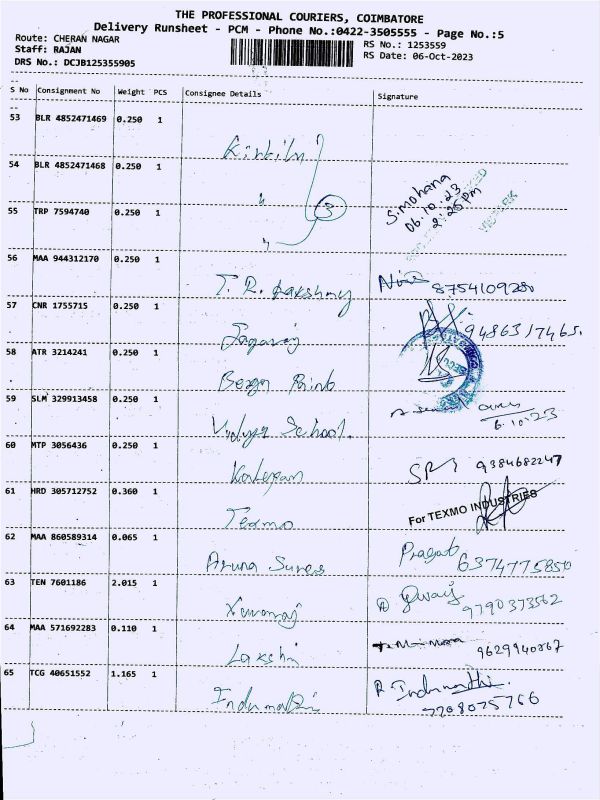 THE PROFESSIONAL COURIERS, COIMBATORE
Delivery Runsheet - PCM - Phone No.:0422-3505555 - Page No.:5
Route: CHERAN NAGAR
RS No.: 1253559
Staff: RAJAN
RS Date: 06-Oct-2023
DRS No.: DCJB125355905
S No Consignment No Weight PCS Consignee Details Signature
53 BLR 4852471469 0.250 1
54 BLR 4852471468 0.250 1
3
S.mohana
06.10.23
2:25 Pm
55 TRP 7594740 0.250 1
56 MAA 944312170 0.250 1
T. R. Lakshmy 8754109280
57 CNR 1755715 0.250 1
9486317465.
58 ATR 3214241 0.250 1
59 SLM 329913458 0.250 1
6.10.23
Vidya School.
60 MTP 3056436 0.250 1
9384682247
61 HRD 305712752 0.360 1
For TEXMO INDUSTRIES
Texmo
62 MAA 860589314 0.065 1
Aruna Sures
6374775850
63 TEN 7601186 2.015 1
9790373562
64 MAA 571692283 0.110 1
9629940867
Lakshmi
65 TCG 40651552 1.165 1
R. Indumathi.
Indumathi 7708075766